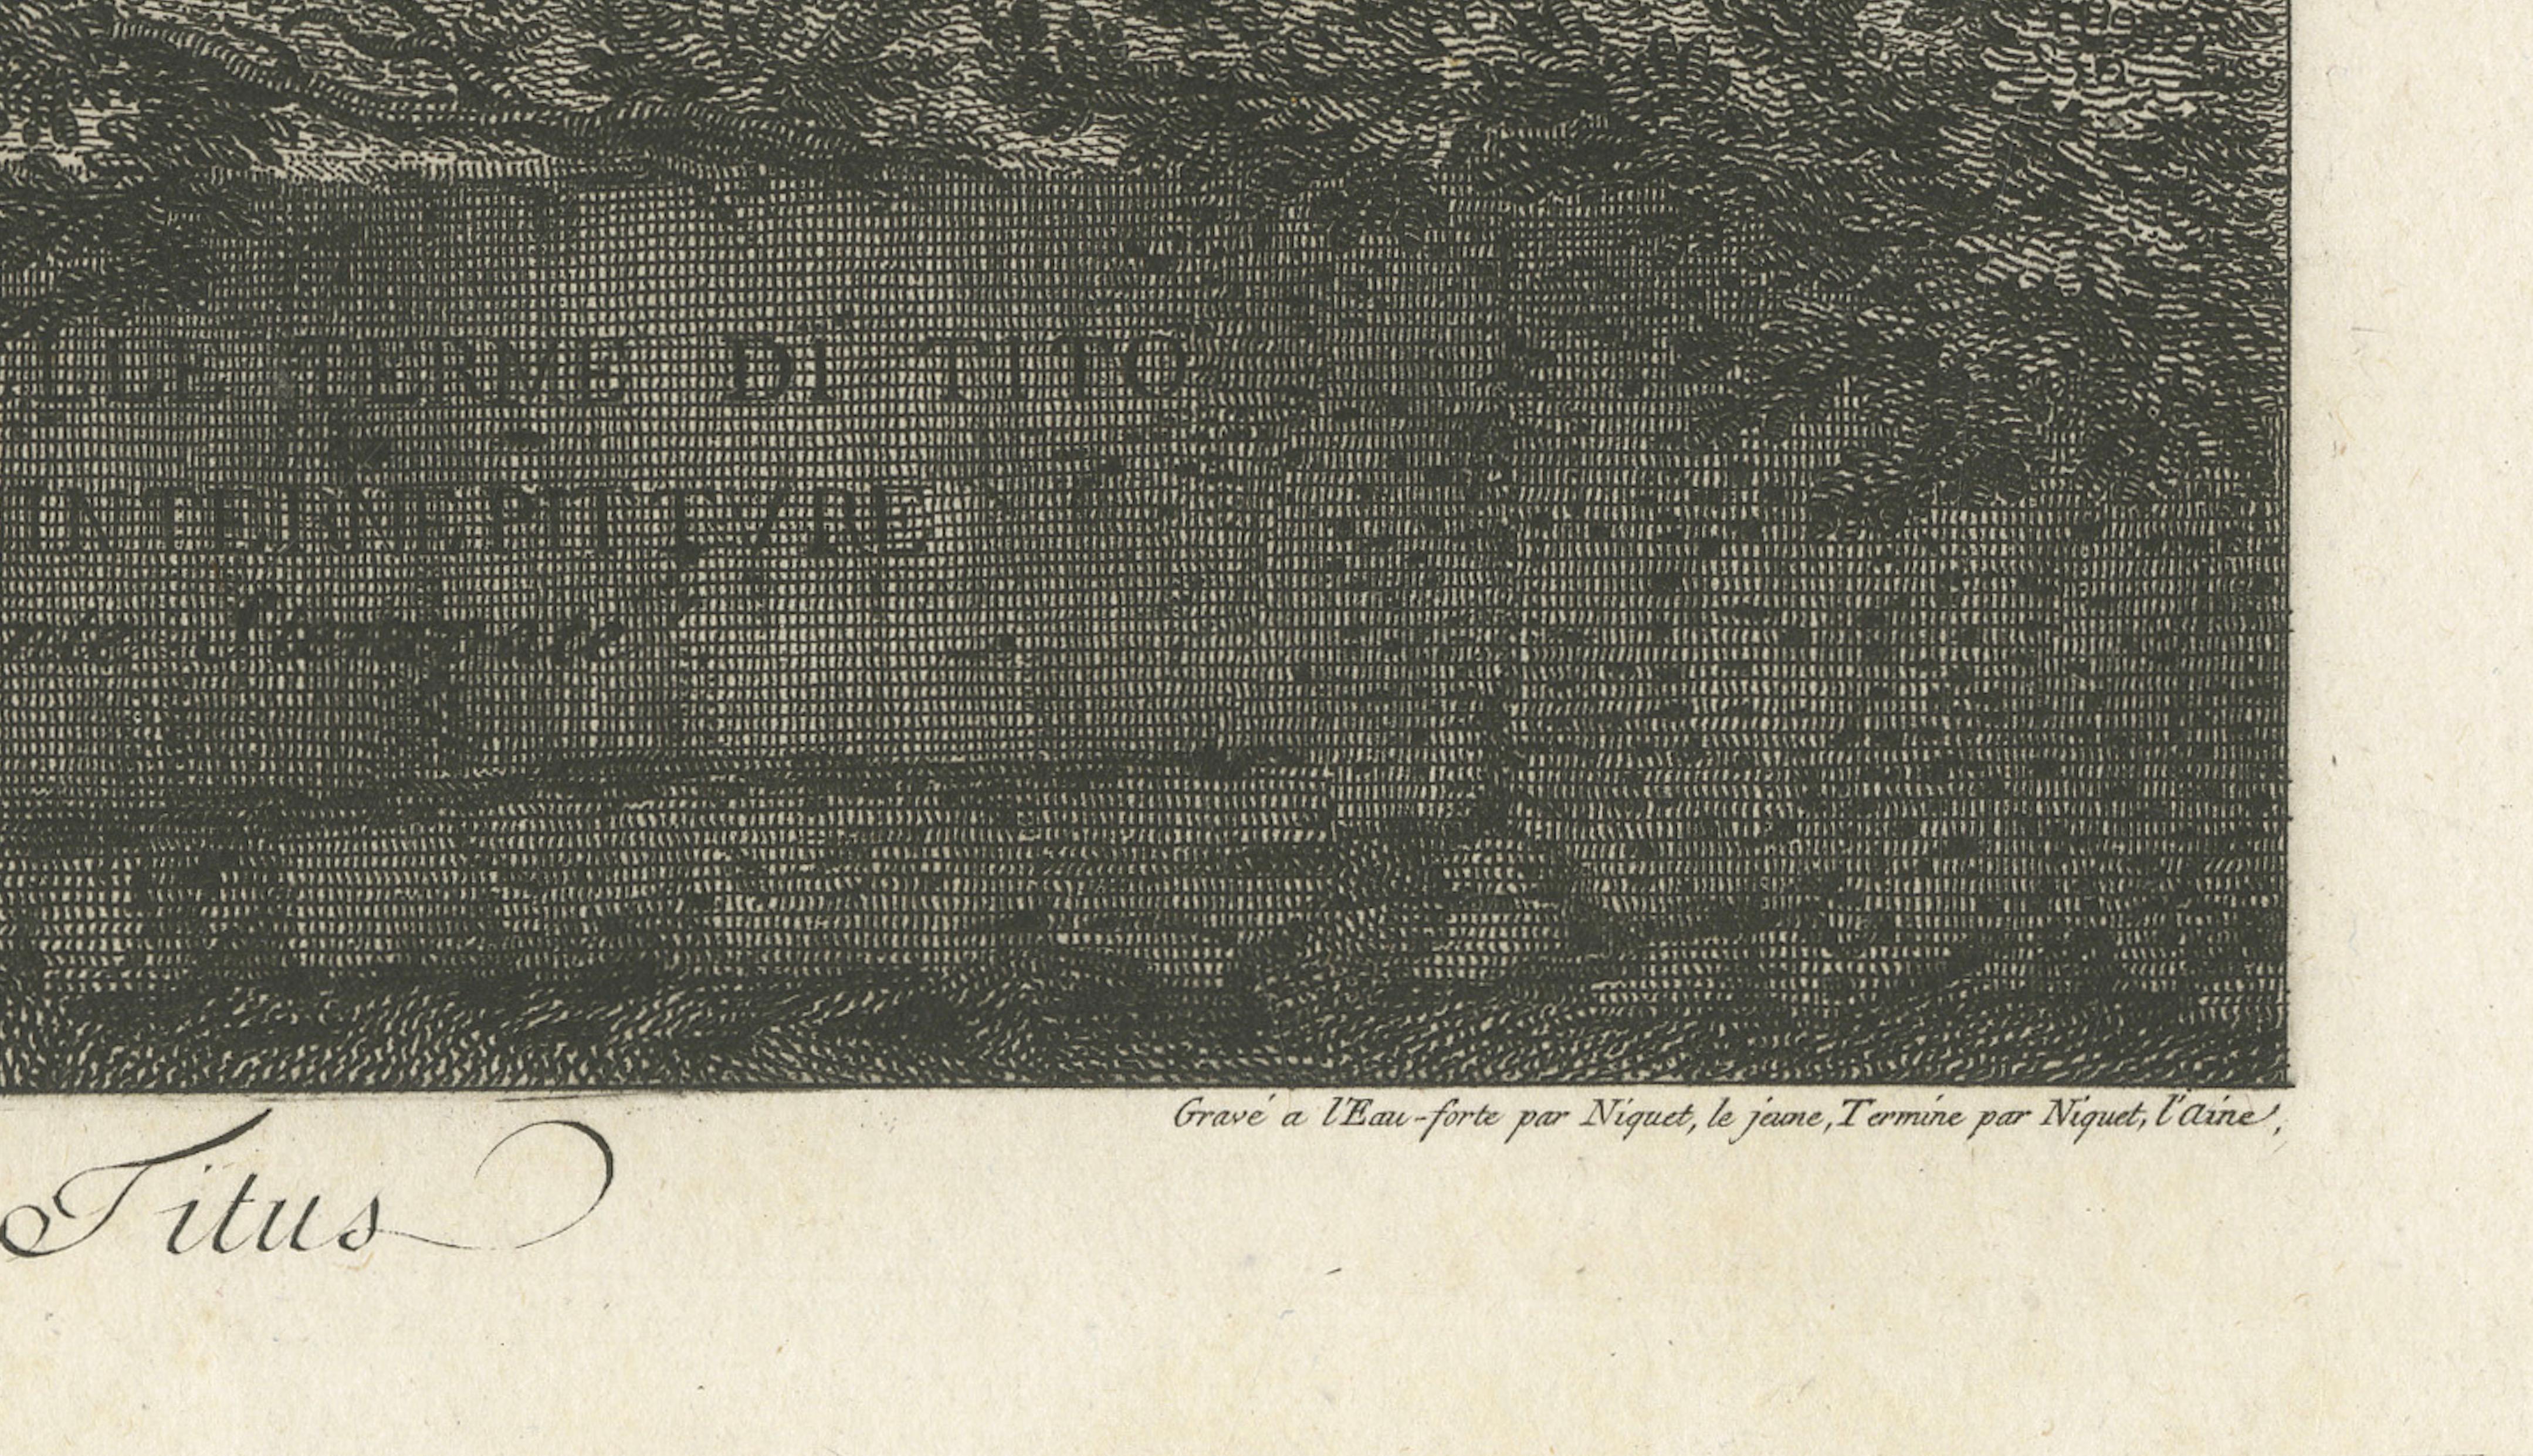 LLE TERME DI TITO
INTERNE PITTVRE
Titus
Gravé a l'Eau-forte par Niquet, le jeune, Terminé par Niquet, l'ainé,